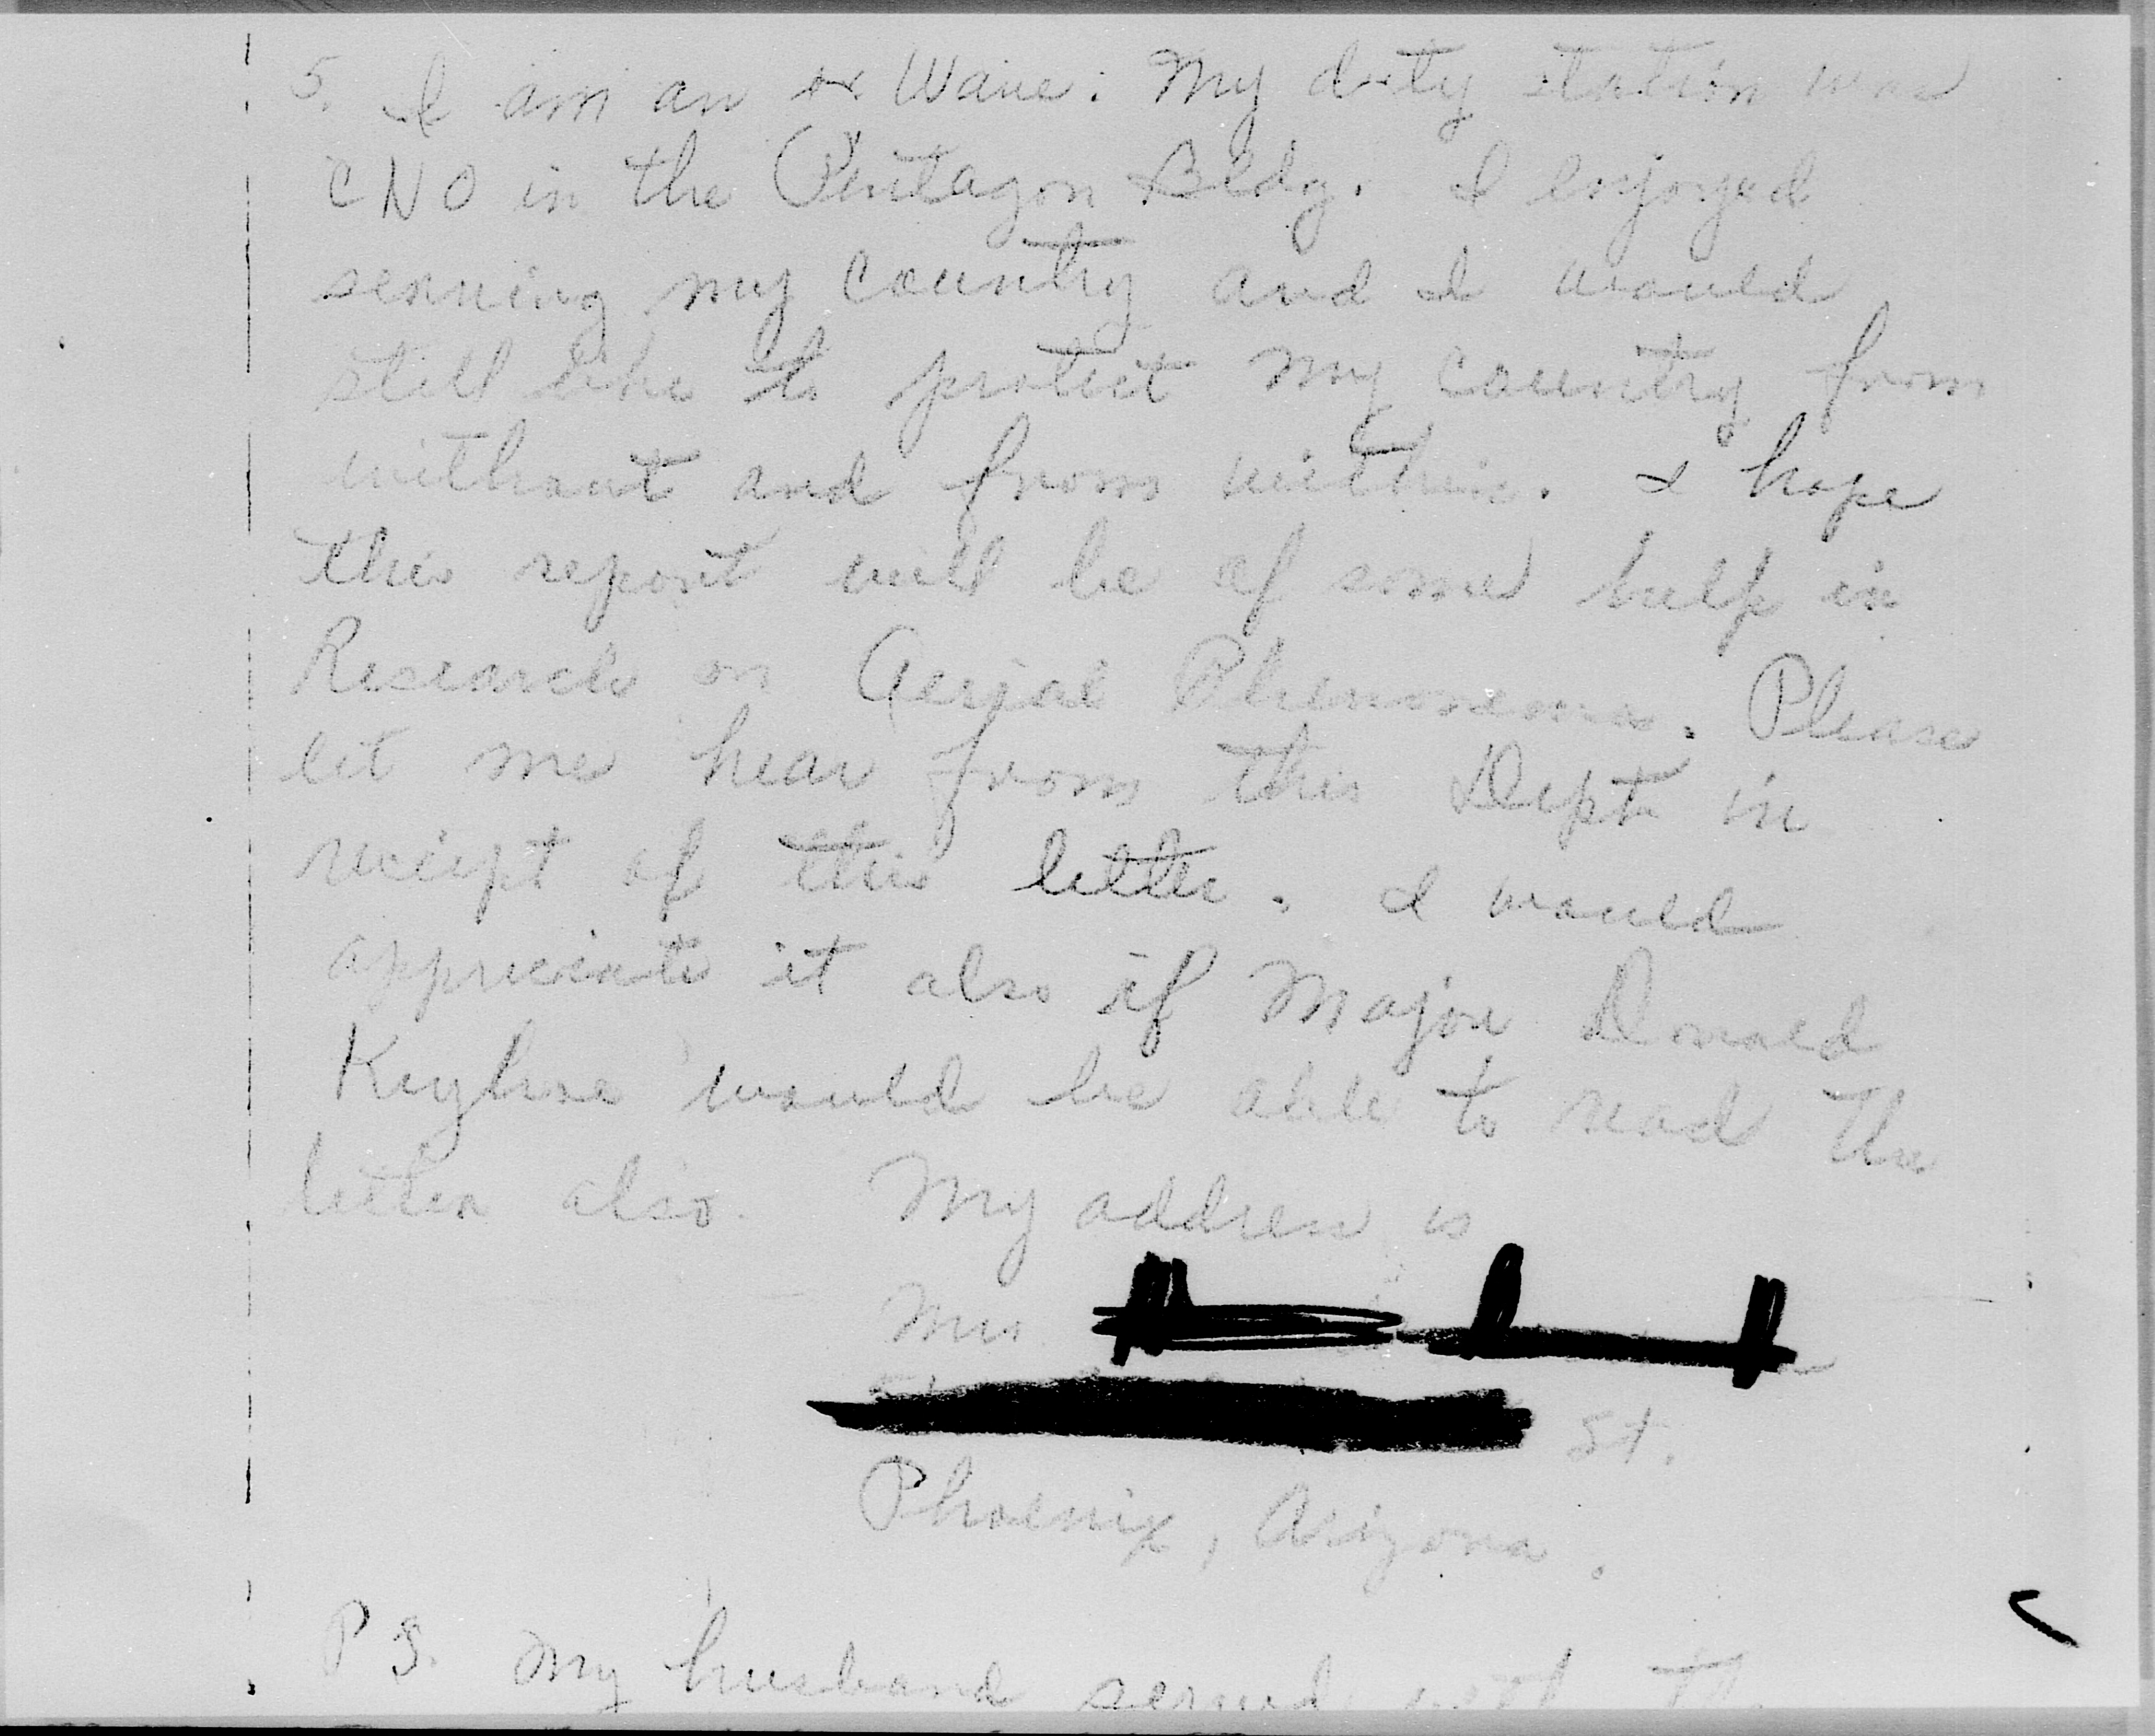 5. I am an ex Wave. My duty station was
CNO in the Pentagon Bldg. I enjoyed
serving my country and I would
still like to protect my country from
without and from within. I hope
this report will be of some help in
Research on Aerial Phenomena. Please
let me hear from this Dept in
reciept of this letter. I would
appreciate it also if Major Donald
Keyhoe would be able to read the
letter also. My address is
Mrs
St.
Phoenix, Arizona.
P S. My husband served with th